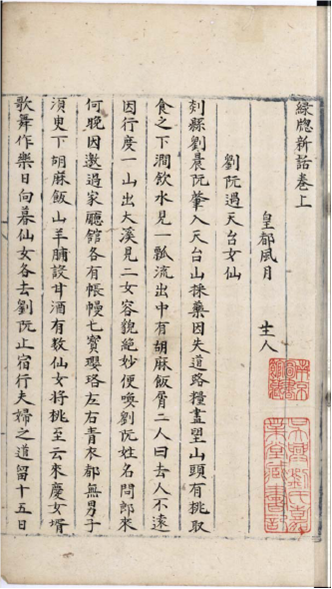 綠牕新話卷上
皇都風月主人
劉阮過天台女仙
剡縣劉晨阮肇入天台山採藥因失道路糧盡望山頭有挑取
食之下澗飲水見一瓢流出中有胡麻飯屑二人曰去人不遠
因行度一山出大溪見二女容貌絶妙便喚劉阮姓名問郎來
何晚因邀過家廳館各有帳幔七寳瓔珞左右青衣都無男子
湏臾下胡麻飯山羊脯設甘酒有数仙女將挑至云來慶女壻
歌舞作樂日向暮仙女各去劉阮止宿行夫婦之道留十五日
吳興劉氏嘉業堂藏書記